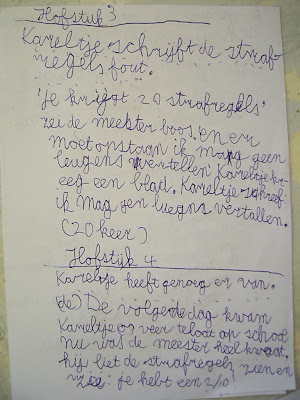 Hofstuk 3
Kareltje schrijft de straf-
regels fout.
'je krijgt 20 strafregels'
zei de meester boos. en er
moet opstaan ik mag geen
leugens vertellen' Kareltje kr-
eeg een blad. Kareltje schreef
ik mag gen luegns vertallen.
(20 keer)
Hofstijk 4
Kareltje heeft genoeg er van.
(de) De volgende dag kwam
Kareltje og veer telaat op school
nu was de meester heel kwaat.
hij liet de strafregels zien en
zee je hebt een 2/10!